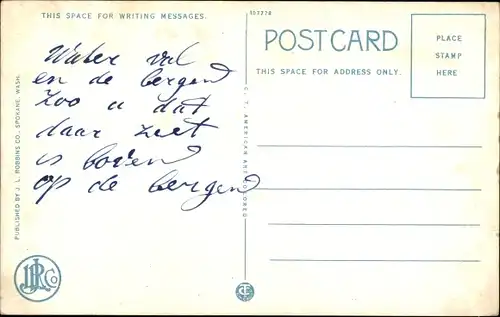 THIS SPACE FOR WRITING MESSAGES.
Water val
en de bergen
zoo u dat
daar zeet
is boven
op de bergen
PUBLISHED BY J. L. ROBBINS CO., SPOKANE, WASH.
JLR Co
107778
C. T. AMERICAN ART COLORED
POSTCARD
THIS SPACE FOR ADDRESS ONLY.
PLACE
STAMP
HERE